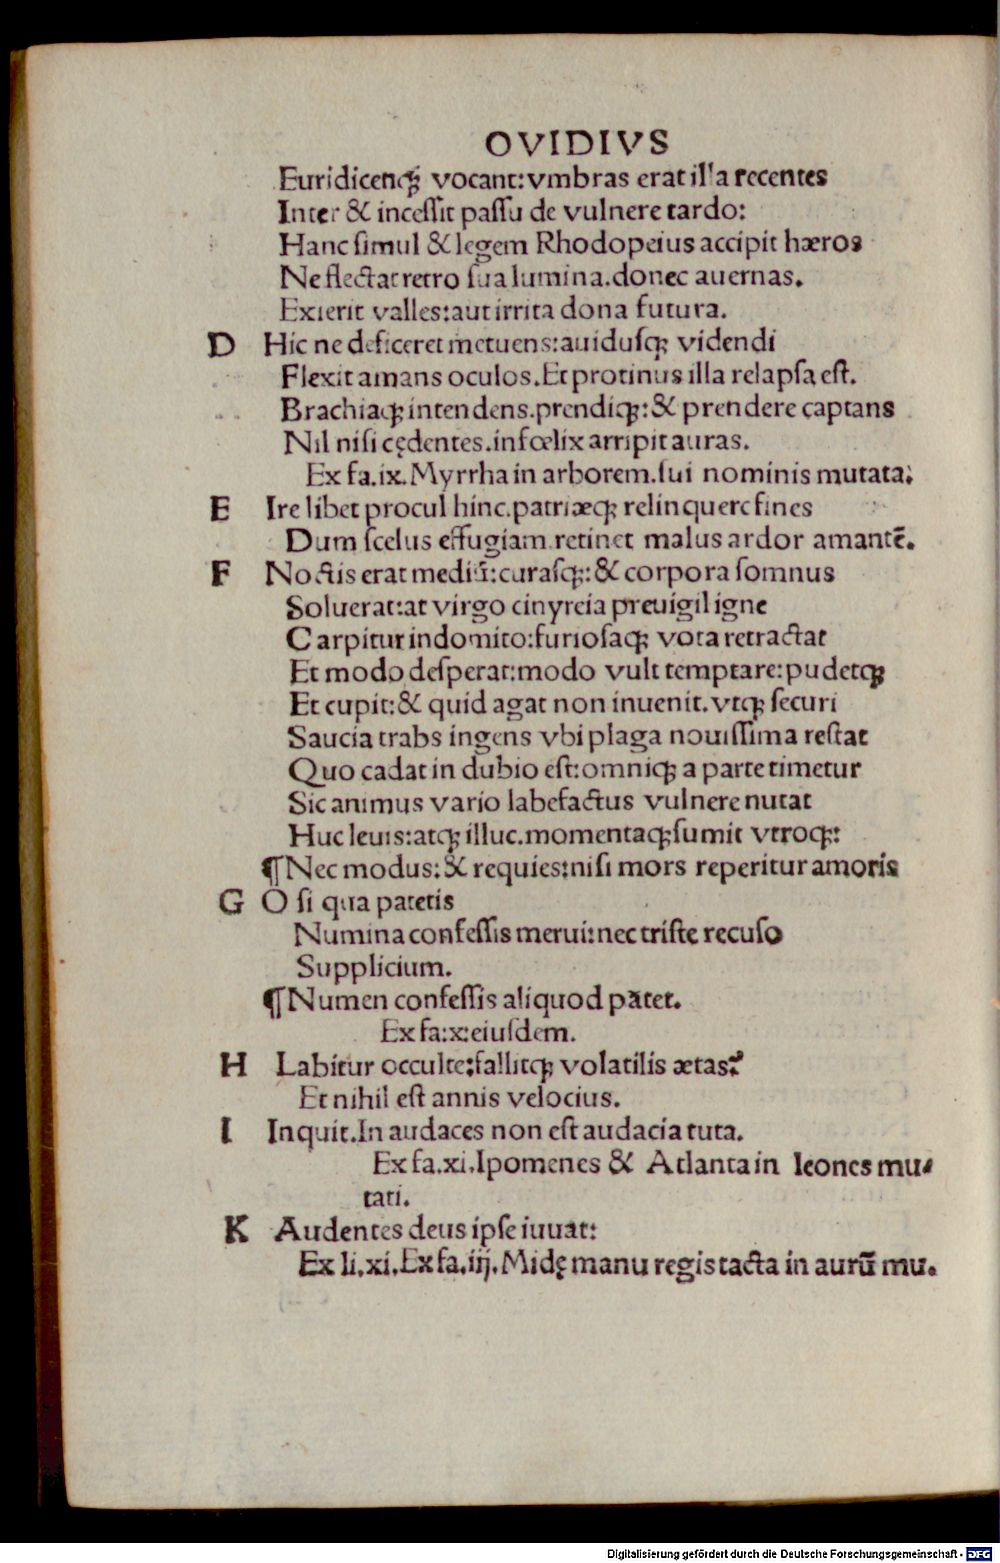 OVIDIVS
Euridicenqꝫ vocant:vmbras erat illa recentes
Inter & inceſſit paſſu de vulnere tardo:
Hanc ſimul & legem Rhodopeius accipit hæros
Ne flectat retro ſua lumina.donec auernas.
Exierit valles:aut irrita dona futura.
D Hic ne deficeret metuens:auiduſqꝫ videndi
Flexit amans oculos.Et protinus illa relapſa eſt.
Brachiaqꝫ intendens.prendiqꝫ:& prendere captans
Nil niſi cędentes.infœlix arripit auras.
Ex fa.ix.Myrrha in arborem.ſui nominis mutata:
E Ire libet procul hinc.patriæqꝫ relinquere fines
Dum ſcelus effugiam.retinet malus ardor amantē.
F Noctis erat mediū:curaſqꝫ:& corpora ſomnus
Soluerat:at virgo cinyreia preuigil igne
Carpitur indomito:furioſaqꝫ vota retractat
Et modo deſperat:modo vult temptare:pudetqꝫ
Et cupit:& quid agat non inuenit.vtqꝫ ſecuri
Saucia trabs ingens vbi plaga nouiſſima reſtat
Quo cadat in dubio eſt:omniqꝫ a parte timetur
Sic animus vario labefactus vulnere nutat
Huc leuis:atqꝫ illuc.momentaqꝫ ſumit vtroqꝫ:
¶Nec modus:& requies:niſi mors reperitur amoris
G O ſi qua patetis
Numina confeſſis merui:nec triſte recuſo
Supplicium.
¶Numen confeſſis aliquod patet.
Ex fa:x:eiuſdem.
H Labitur occulte:fallitqꝫ volatilis ætas:
Et nihil eſt annis velocius.
I Inquit.In audaces non eſt audacia tuta.
Ex fa.xi.Ipomenes & Atlanta in leones mu⸗
tati.
K Audentes deus ipſe iuuat:
Ex li.xi.Ex fa.iij.Midę manu regis tacta in aurū mu.
Digitalisierung gefördert durch die Deutsche Forschungsgemeinschaft - DFG